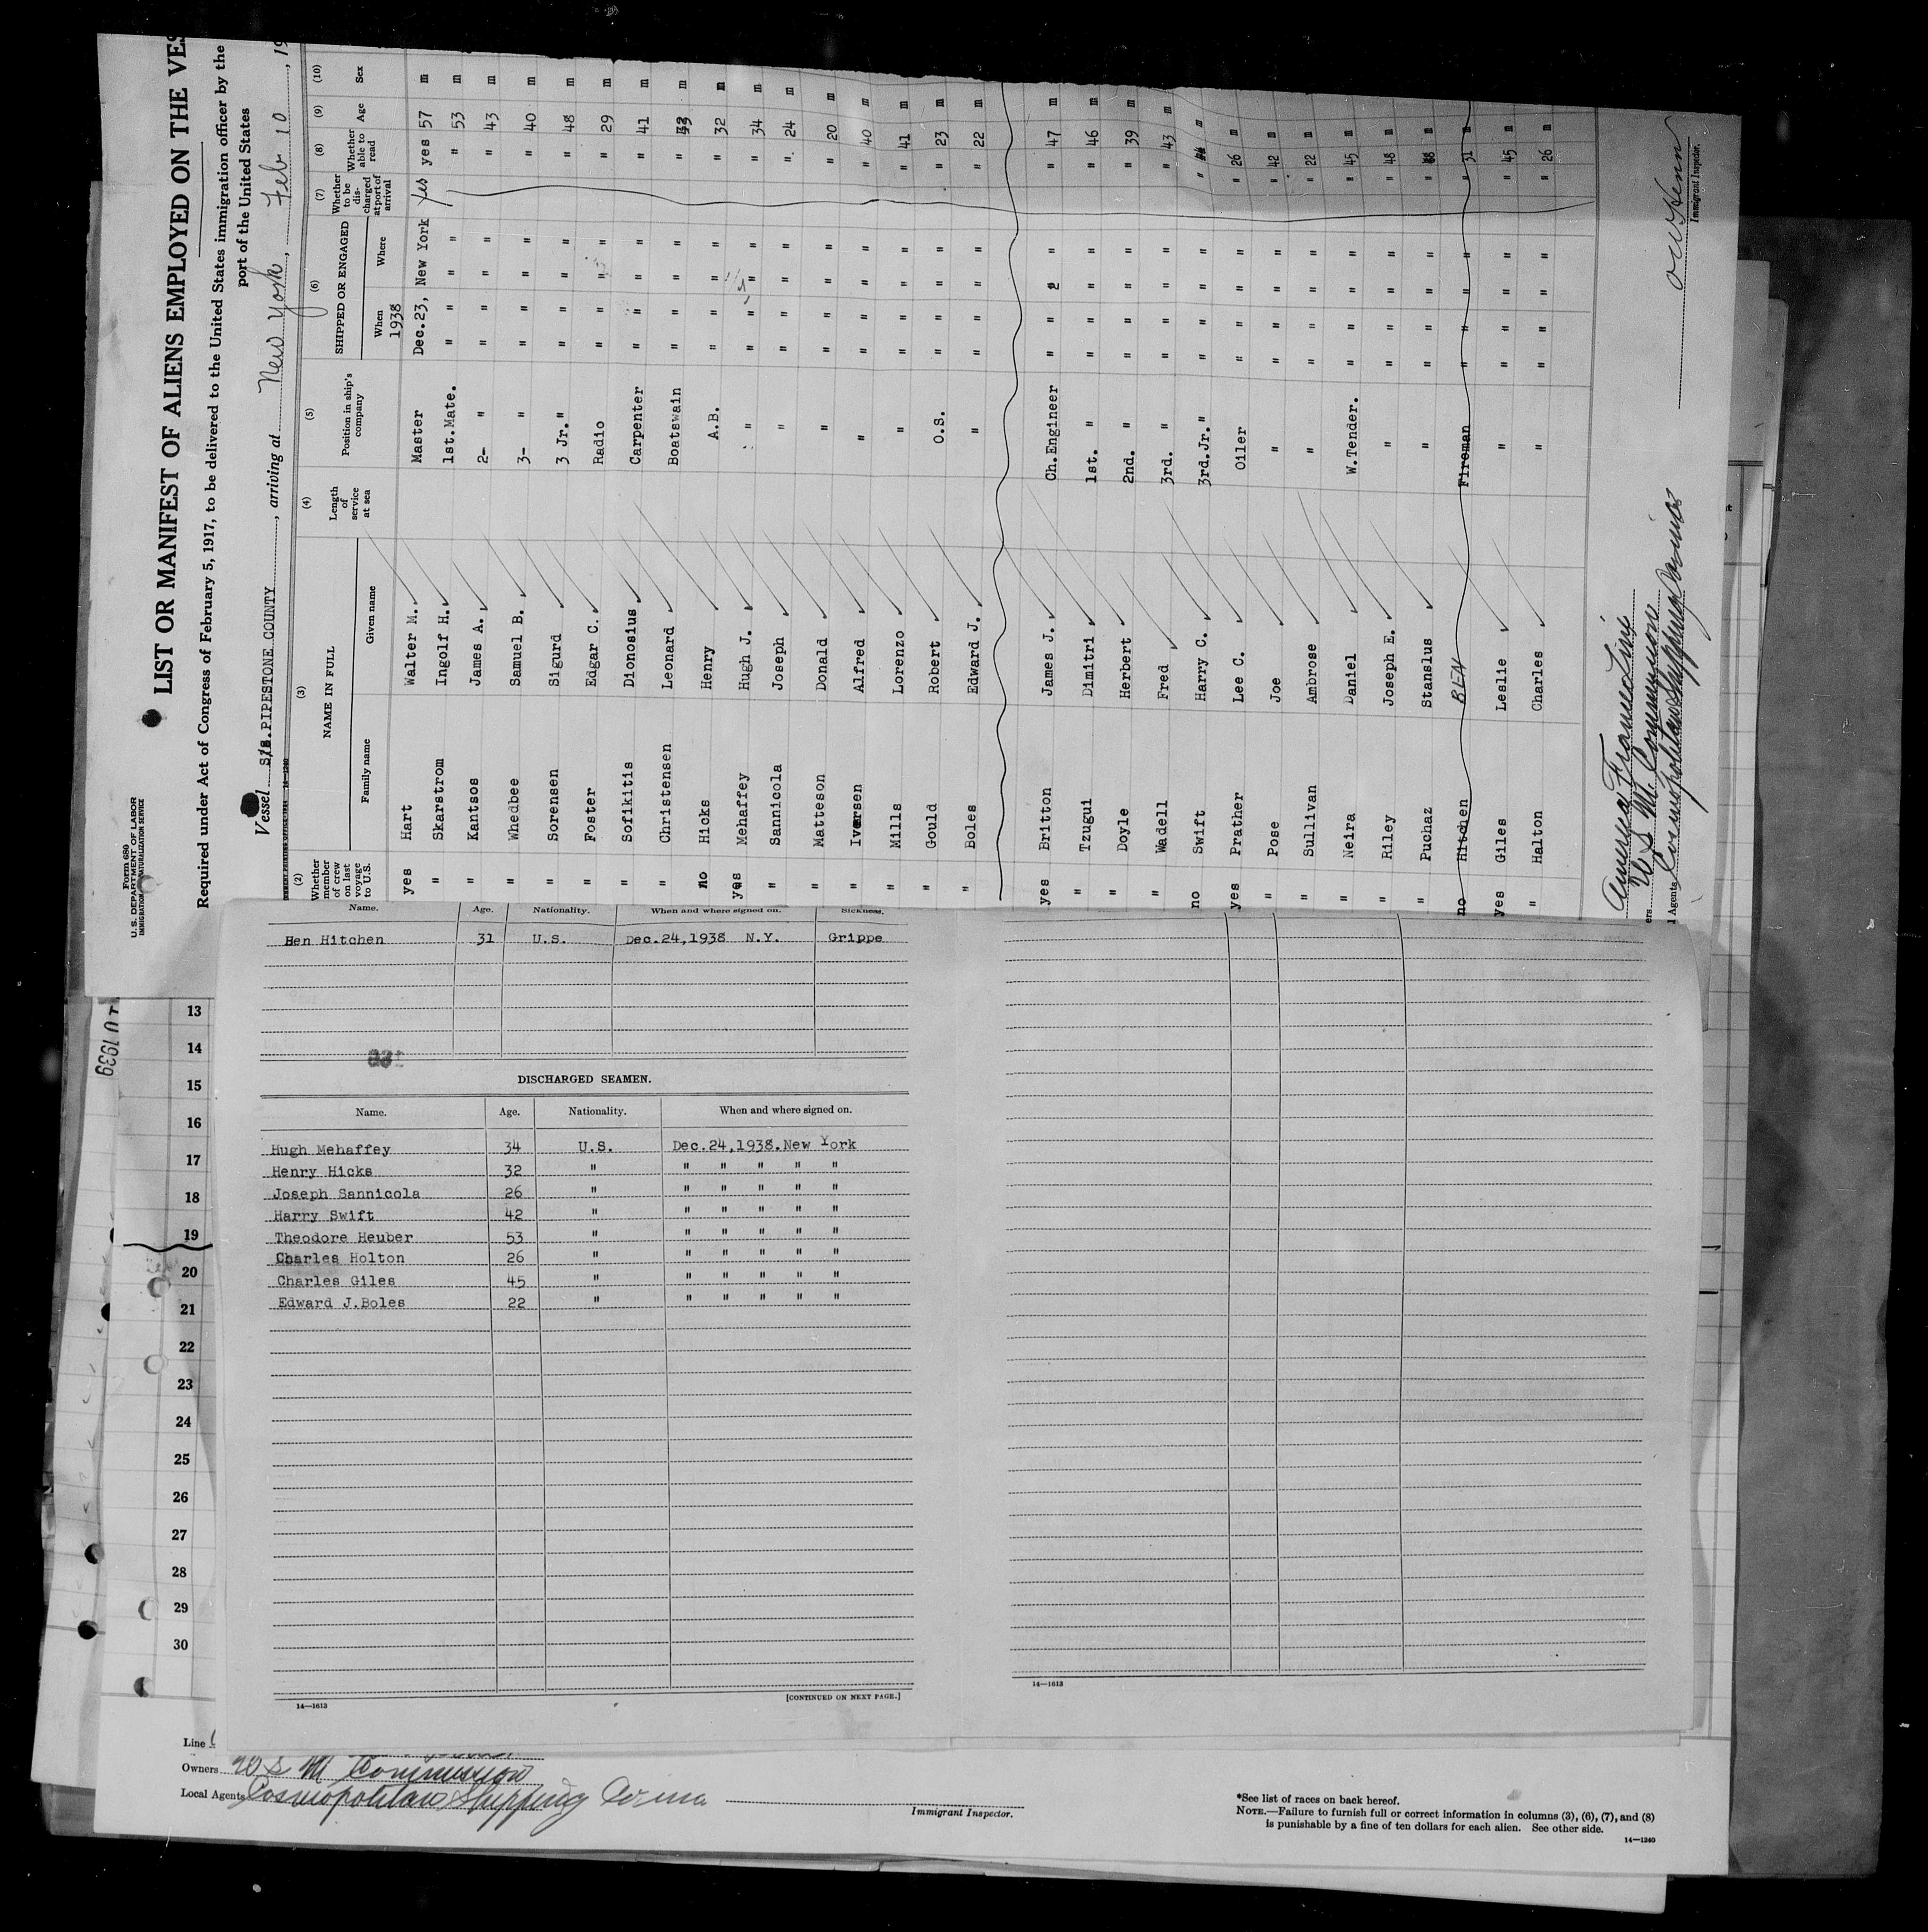 Form 680
U.S. DEPARTMENT OF LABOR
IMMIGRATION AND NATURALIZATION SERVICE
LIST OR MANIFEST OF ALIENS EMPLOYED ON THE VES
Required under Act of Congress of February 5, 1917, to be delivered to the United States immigration officer by the
port of the United States
Vessel S/S. PIPESTONE COUNTY, arriving at New York, Feb 10, 19
(2) (3) (4) (5) (6) (7) (8) (9) (10)
Whether member of crew on last voyage to U.S. NAME IN FULL Family name Given name Length of service at sea Position in ship's company SHIPPED OR ENGAGED When Where Whether to be discharged at port of arrival Whether able to read Age Sex
1938
yes Hart Walter M. Master Dec.23, New York Yes yes 57 m
" Skarstrom Ingolf H. 1st.Mate. " " " " " 53 m
" Kantsos James A. 2- " " " " " " 43 m
" Whedbee Samuel B. 3- " " " " " " 40 m
" Sorensen Sigurd 3 Jr." " " " " " 48 m
" Foster Edgar C. Radio " " " " " 29 m
" Sofikitis Dionosius Carpenter " " " " " 41 m
" Christensen Leonard Boatswain " " " " " m
no Hicks Henry A.B. " " " " " 32 m
yes Mehaffey Hugh J. " " " " " " 34 m
" Sannicola Joseph " " " " " " 24 m
" Matteson Donald " " " " " " 20 m
" Iversen Alfred " " " " " " 40 m
" Mills Lorenzo " " " " " " 41 m
" Gould Robert O.S. " " " " " 23 m
" Boles Edward J. " " " " " " 22 m
yes Britton James J. Ch.Engineer " " 2 " " 47 m
" Tzugui Dimitri 1st. " " " " " " 46 m
" Doyle Herbert 2nd. " " " " " " 39 m
" Wadell Fred 3rd. " " " " " " 43 m
no Swift Harry C. 3rd.Jr." " " " " " m
yes Prather Lee C. Oiler " " " " " 26 m
" Pose Joe " " " " " " 42 m
" Sullivan Ambrose " " " " " " 22 m
" Neira Daniel W.Tender. " " " " " 45 m
" Riley Joseph E. " " " " " " 48 m
" Puchaz Stanslus " " " " " " m
no Hitchen BEN Fireman " " " " " 31 m
yes Giles Leslie " " " " " " 45 m
" Halton Charles " " " " " " 26 m
America France Line
ers U S M. Commission
l Agents Cosmopolitan Shipping
Immigrant Inspector.
Name. Age. Nationality. When and where signed on. Sickness.
Ben Hitchen 31 U.S. Dec.24,1938 N.Y. Grippe
DISCHARGED SEAMEN.
Name. Age. Nationality. When and where signed on.
Hugh Mehaffey 34 U.S. Dec.24,1938.New York
Henry Hicks 32 " " " " " "
Joseph Sannicola 26 " " " " " "
Harry Swift 42 " " " " " "
Theodore Heuber 53 " " " " " "
Charles Holton 26 " " " " " "
Charles Giles 45 " " " " " "
Edward J.Boles 22 " " " " " "
14—1613
[CONTINUED ON NEXT PAGE.]
14—1613
1939
13
14
15
16
17
18
19
20
21
22
23
24
25
26
27
28
29
30
Line
Owners U S M Commission
Local Agents Cosmopolitan Shipping
Immigrant Inspector.
*See list of races on back hereof.
NOTE.—Failure to furnish full or correct information in columns (3), (6), (7), and (8)
is punishable by a fine of ten dollars for each alien. See other side.
14—1240